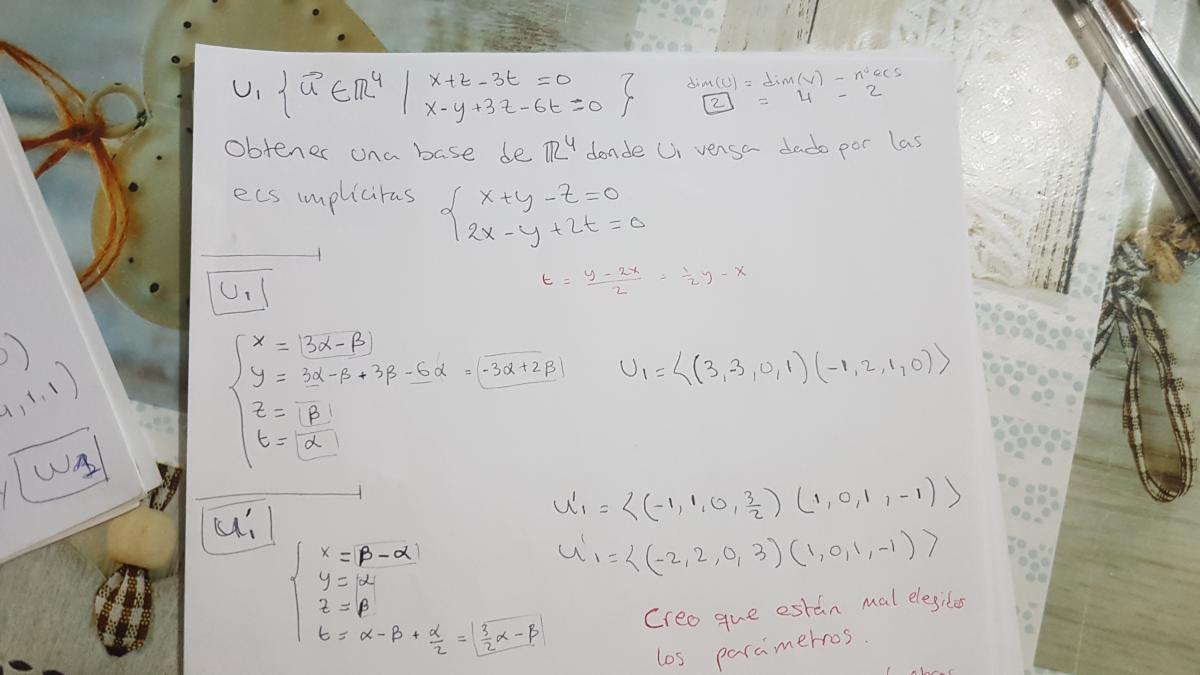 U₁ { u⃗ ∈ ℝ⁴ | x+z-3t = 0
x-y+3z-6t = 0 }
dim(U) = dim(V) - nº ecs
2 = 4 - 2
Obtener una base de ℝ⁴ donde U₁ venga dado por las
ecs implícitas { x+y-z=0
2x-y+2t=0
t = (y-2x)/2 = 1/2 y - x
U₁
x = 3α-β
y = 3α-β+3β-6α = -3α+2β
z = β
t = α
U₁ = <(3,3,0,1)(-1,2,1,0)>
0)
4,1,1)
W₁
U'₁
U'₁ = <(-1,1,0,3/2)(1,0,1,-1)>
U'₁ = <(-2,2,0,3)(1,0,1,-1)>
x = β-α
y = α
z = β
t = α-β+α/2 = 3/2 α-β
Creo que están mal elegidos
los parámetros.